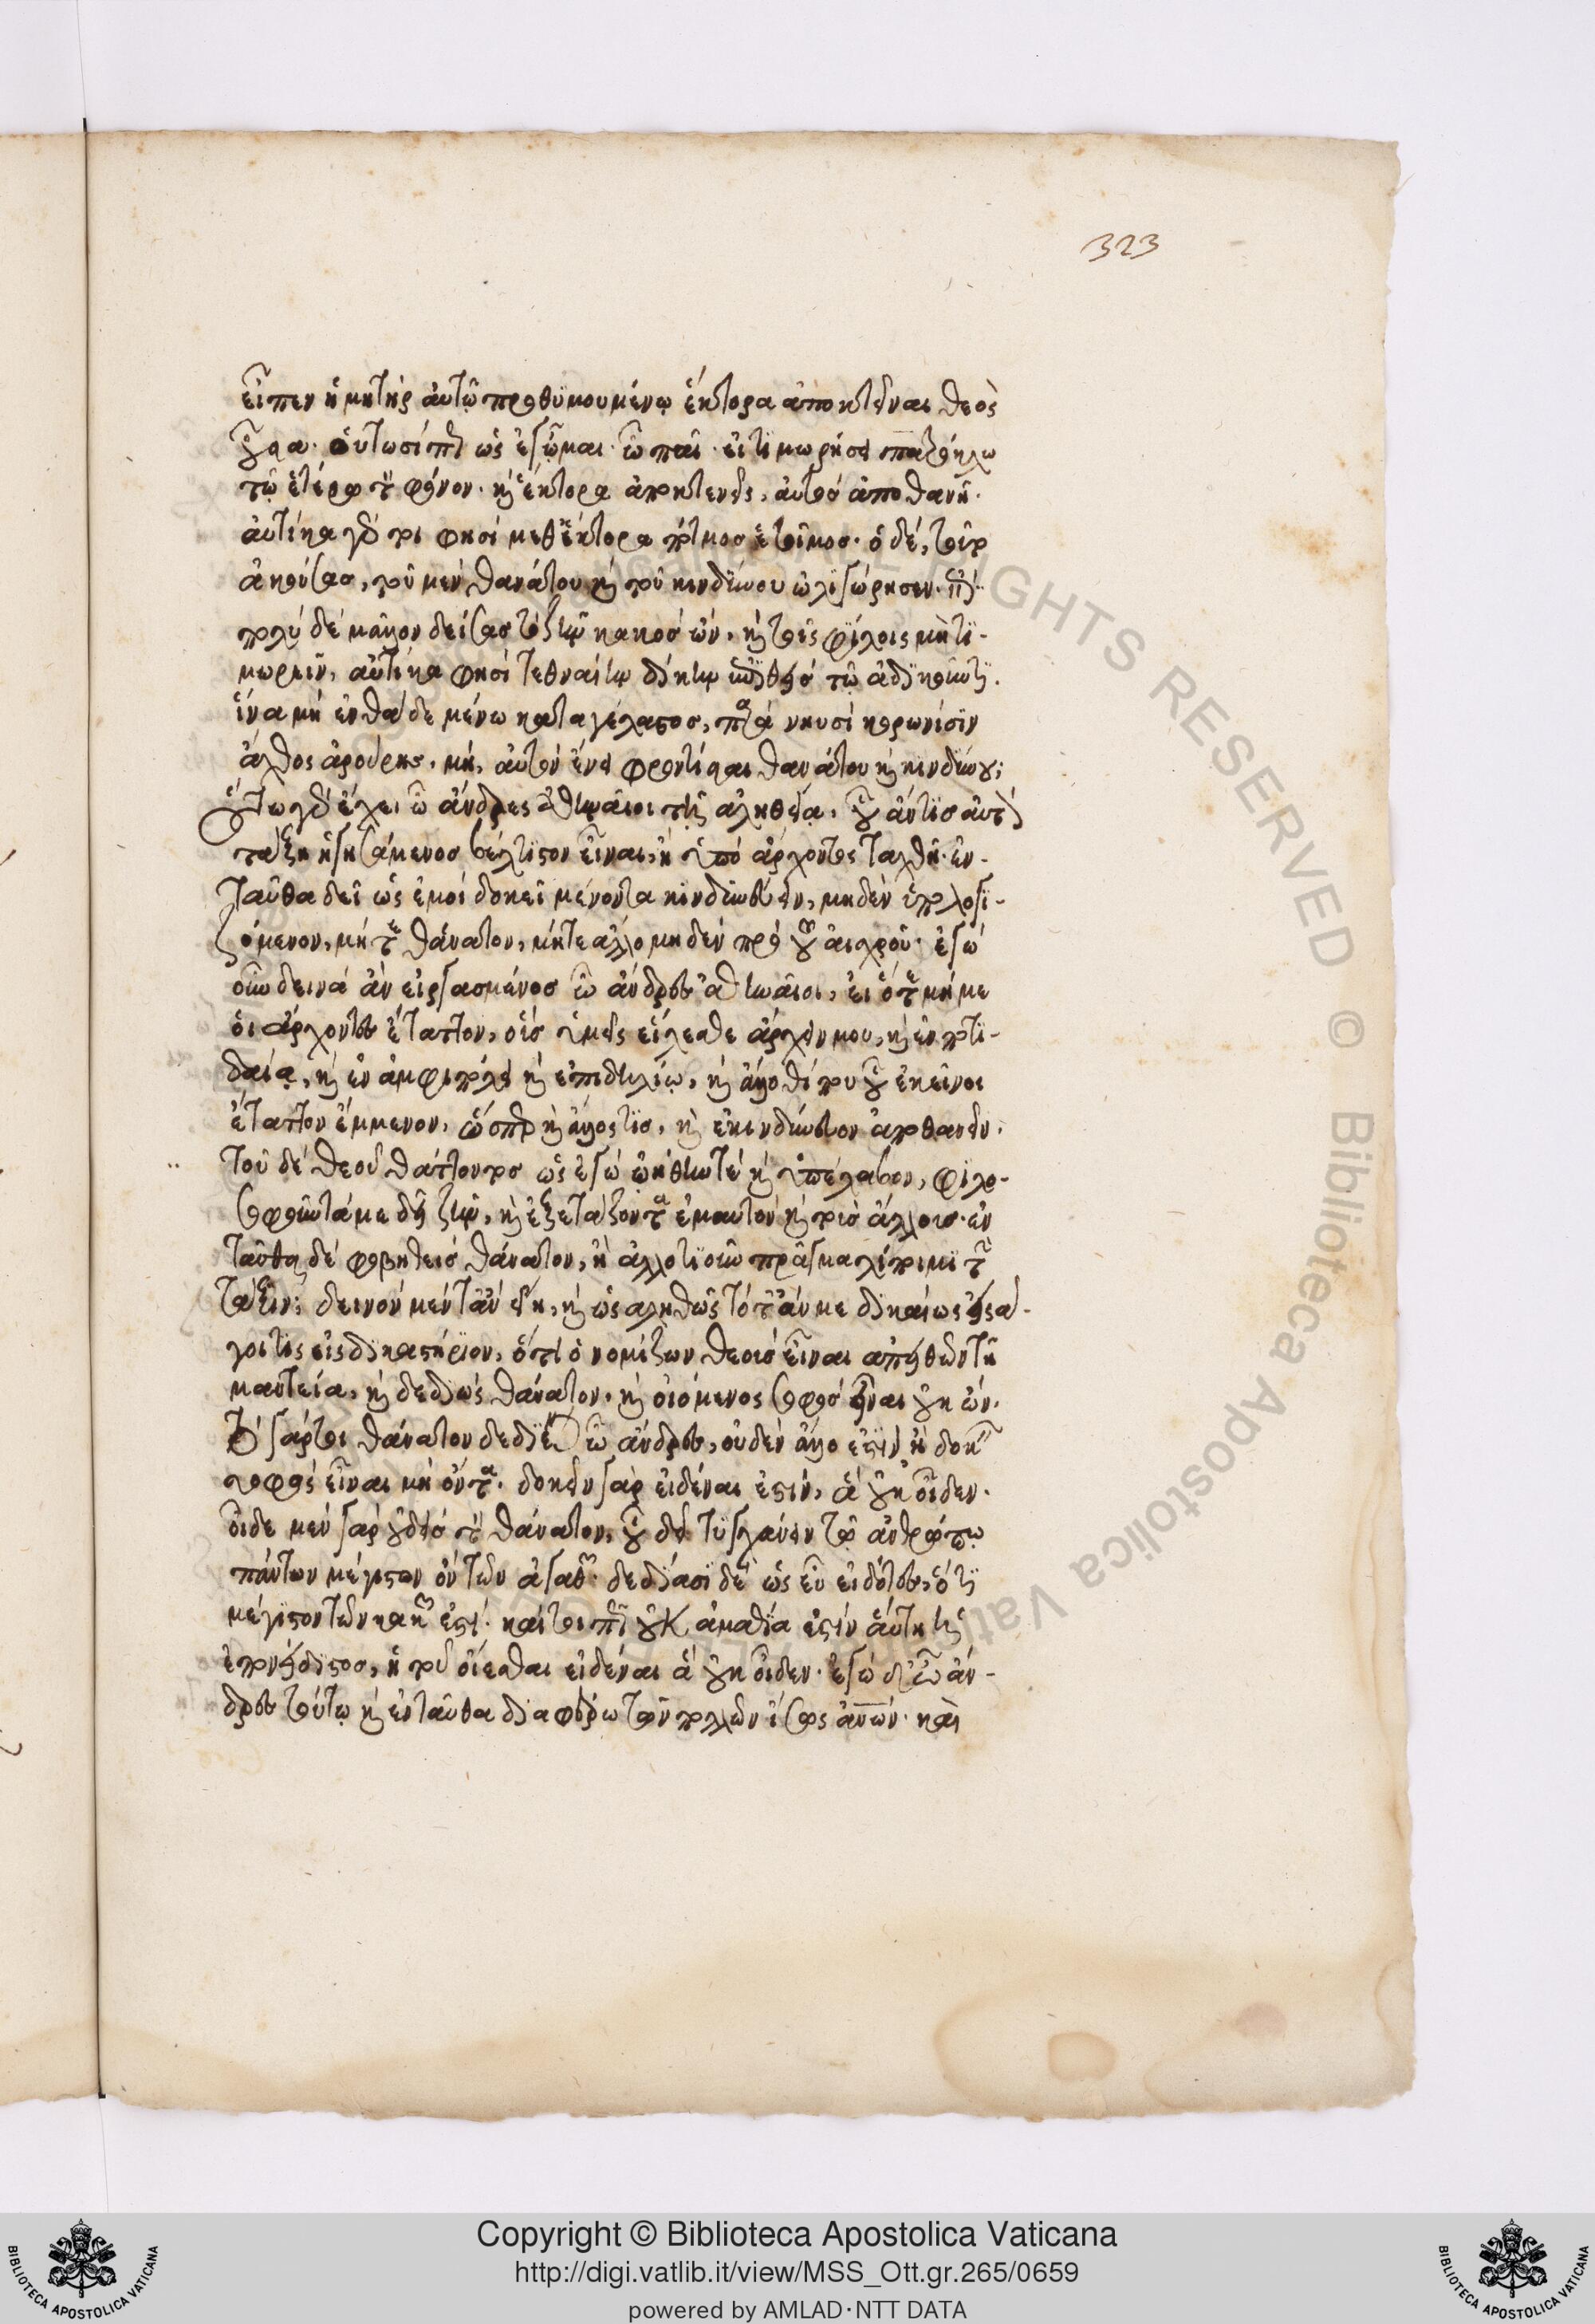 323
εἶπεν ἡ μητὴρ αὐτῷ προθυμουμένῳ ἕκτορα ἀποκτεῖναι θεὸς
οὖσα. οὑτωσί πως ὡς ἐγᾦμαι. ὦ παῖ. εἰ τιμωρήσεις πατρόκλω
τῷ ἑτέρῳ τὸν φόνον. καὶ ἕκτορα ἀποκτενεῖς, αὐτὸς ἀποθανῇ.
αὐτίκα γάρ τοι φησὶ μεθ' ἕκτορα πότμος ἑτοῖμος. ὁ δὲ,
ἀκούσας, τοῦ μὲν θανάτου καὶ τοῦ κινδύνου ὠλιγώρησεν.
πολὺ δὲ μᾶλλον δείσας τὸ ζῆν κακὸς ὤν, καὶ τοῖς φίλοις μὴ τι-
μωρεῖν, αὐτίκα φησὶ τεθναίην δίκην ἐπιθεὶς τῷ ἀδικοῦντι.
ἵνα μὴ ἐνθάδε μένω καταγέλαστος, παρὰ νηυσὶ κορωνίσιν
ἄχθος ἀρούρης. μὴ, αὐτὸν οἴει φροντίσαι θανάτου καὶ κινδύνου;
οὕτω γὰρ ἔχει ὦ ἄνδρες ἀθηναῖοι τῇ ἀληθείᾳ. οὗ ἄν τις αὑτὸν
τάξῃ ἡγησάμενος βέλτιστον εἶναι, ἢ ὑπὸ ἄρχοντος ταχθῇ. ἐν-
ταῦθα δεῖ ὡς ἐμοὶ δοκεῖ μένοντα κινδυνεύειν, μηδὲν ὑπολογι-
ζόμενον, μήτε θάνατον, μήτε ἄλλο μηδὲν πρὸ τοῦ αἰσχροῦ. ἐγὼ
οὖν δεινὰ ἂν εἰργασμένος ὦ ἄνδρες ἀθηναῖοι, εἰ ὅτε μέν με
οἱ ἄρχοντες ἔταττον, οὓς ὑμεῖς εἵλεσθε ἄρχειν μου, καὶ ἐν ποτι-
δαίᾳ, καὶ ἐν ἀμφιπόλει καὶ ἐπὶ δηλίῳ, καὶ ἄλλοθί που οὗ ἐκεῖνοι
ἔταττον ἔμενον, ὥσπερ καὶ ἄλλος τις, καὶ ἐκινδύνευον ἀποθανεῖν.
τοῦ δὲ θεοῦ τάττοντος ὡς ἐγὼ ᾠήθην τε καὶ ὑπέλαβον, φιλο-
σοφοῦντά με δεῖν ζῆν, καὶ ἐξετάζοντα ἐμαυτὸν καὶ τοὺς ἄλλους. ἐν
ταῦθα δὲ φοβηθεὶς θάνατον, ἢ ἄλλο τι οὖν πρᾶγμα λίποιμι τὴν
τάξιν; δεινὸν μέντἂν εἴη, καὶ ὡς ἀληθῶς τότ' ἄν με δικαίως εἰσά-
γοι τις εἰς δικαστήριον, ὅτι οὐ νομίζων θεοὺς εἶναι ἀπειθῶν τῇ
μαντεία, καὶ δεδιὼς θάνατον. καὶ οἰόμενος σοφὸς εἶναι οὐκ ὤν.
τὸ γάρ τοι θάνατον δεδιέναι ὦ ἄνδρες, οὐδὲν ἄλλο ἐστὶν ἢ δοκεῖν
σοφὸς εἶναι μὴ ὄντα. δοκεῖν γὰρ εἰδέναι ἐστίν, ἃ οὐκ οἶδεν.
οἶδε μὲν γὰρ οὐδεὶς τὸν θάνατον, οὐδ' εἰ τυγχάνει τῷ ἀνθρώπῳ
πάντων μέγιστον ὂν τῶν ἀγαθῶν. δεδίασι δὲ ὡς εὖ εἰδότες, ὅτι
μέγιστον τῶν κακῶν ἐστι. καί τοι πῶς οὐκ ἀμαθία ἐστὶν αὕτη ἡ
ἐπονείδιστος, ἡ τοῦ οἴεσθαι εἰδέναι ἃ οὐκ οἶδεν. ἐγὼ δὲ ὦ ἄν-
δρες τούτῳ καὶ ἐνταῦθα διαφέρω τῶν πολλῶν ἴσως ἀνων. καὶ
ALL RIGHTS RESERVED © Biblioteca Apostolica Vaticana
BIBLIOTECA APOSTOLICA VATICANA
Copyright © Biblioteca Apostolica Vaticana
http://digi.vatlib.it/view/MSS_Ott.gr.265/0659
powered by AMLAD·NTT DATA
BIBLIOTECA APOSTOLICA VATICANA